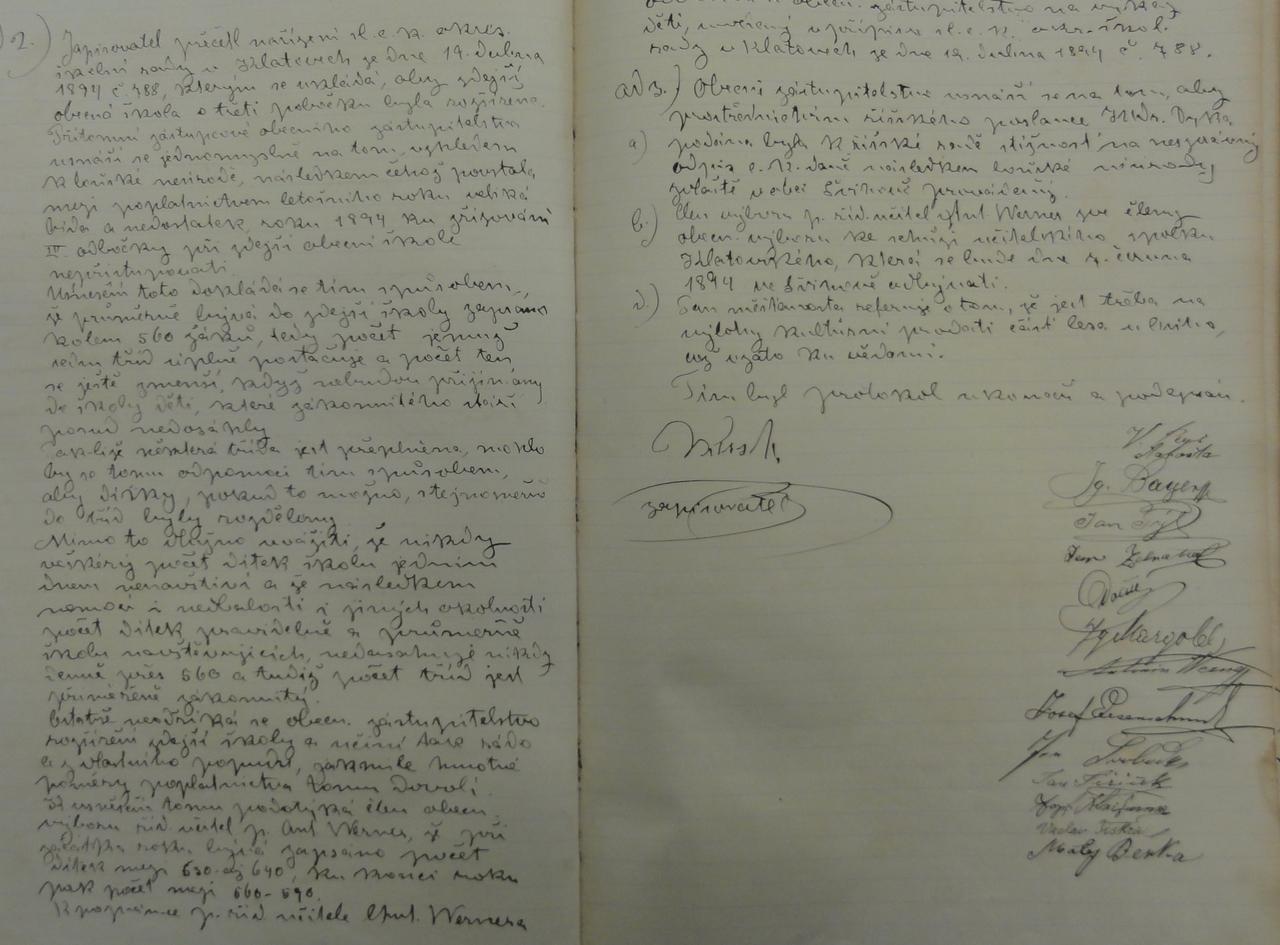 2.) Zapisovatel přečetl nařízení sl. c. k. okres.
školní rady v Klatovech ze dne 19. dubna
1894 č. 788, kterým se ukládá, aby zdejší
obecná škola o třetí pobočku byla rozšířena.
Přítomní zástupcové obecního zastupitelstva
usnáší se jednomyslně na tom, vzhledem
k loňské neúrodě, následkem čehož povstala
mezi poplatnictvem letošního roku veliká
bída a nedostatek, roku 1894 ku zřizování
III odbočky při zdejší obecní škole
nepřistupovati.
Usnesení toto dokládá se tím způsobem,
že průměrně bývá do zdejší školy zapsáno
kolem 560 žáků, tedy počet jennž
sedmi tříd úplně postačuje a počet ten
se ještě zmenší, když nebudou přijímány
do školy děti, které zákonitého stáří
posud nedosáhly
Takliže některá třída jest přeplněna, mohlo
by se tomu odpomoci tím způsobem,
aby dítky, pokud to možno, stejnoměrně
do tříd byly rozděleny.
Mimo to dlužno uvážiti, že nikdy
veškerý počet dítek školu jedním
dnem nenavštíví a že následkem
nemoci i nedbalosti i jiných okolností
počet dítek pravidelně a průměrně
školu navštěvujících, nedosahuje nikdy
denně přes 560 a tudíž počet tříd jest
přiměřeně zákonitý.
Ostatně neodříká se obecn. zástupitelstvo
rozšíření zdejší školy a učiní tak rádo
a z vlastního popudu, jakmile hmotné
poměry poplatnictva tomu dovolí.
K usnešení tomu podotýká člen obecn.
výboru říd. učitel p. Ant. Werner, že při
začátku roku bývá zapsáno počet
dítek mezi 630 až 640, ku konci roku
pak počet mezi 560-590.
K poznámce p. říd. učitele Ant. Wernera
děti, uvržený v přípise sl. c. k. okr. škol.
rady v Klatovech ze dne 19. dubna 1894 č. 788.
ad 3.) Obecní zástupitelstvo usnáší se na tom, aby
prostřednictvím říšského poslance JUDr. Dyka
a) podána byla k říšské radě stížnost na nesprávný
odpis c. k. daně následkem loňské neúrody
zvláště v obci provádený.
b) Člen výboru p. říd. učitel Ant Werner zve členy
obecn. výboru ke schůzi učitelského spolku
Klatovského, která se bude dne 7. června
1894 ve odbývati.
d) Pan měšťanosta referuje o tom, že jest třeba na
výlohy kultúrní prodati část lesa
což vzato ku vědomí.
Tím byl protokol ukončen a podepsán.
zapisovatel
V.
Starosta
Ig. Bayer
Jan
Jan
Ig Margold
Josef Eisenschmid
Jan Svoboda
Jan
Václav
Matěj Berka